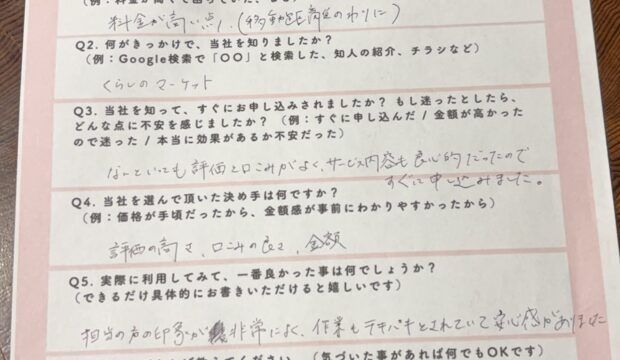 料金が高い点、(移動距離のわりに)
Q2. 何がきっかけで、当社を知りましたか？
(例：Google検索で「〇〇」と検索した、知人の紹介、チラシなど)
くらしのマーケット
Q3. 当社を知って、すぐにお申し込みされましたか？ もし迷ったとしたら、
どんな点に不安を感じましたか？（例：すぐに申し込んだ / 金額が高かった
ので迷った / 本当に効果があるか不安だった）
なんといっても評価と口こみがよく、サービス内容も良心的だったので
すぐに申し込みました。
Q4. 当社を選んで頂いた決め手は何ですか？
(例：価格が手頃だったから、金額感が事前にわかりやすかったから)
評価の高さ、口こみの良さ、金額
Q5. 実際に利用してみて、一番良かった事は何でしょうか？
(できるだけ具体的にお書きいただけると嬉しいです)
担当の方の印象が非常によく、作業もテキパキとされていて安心感がありました
ください (気づいた事があれば何でもOKです)